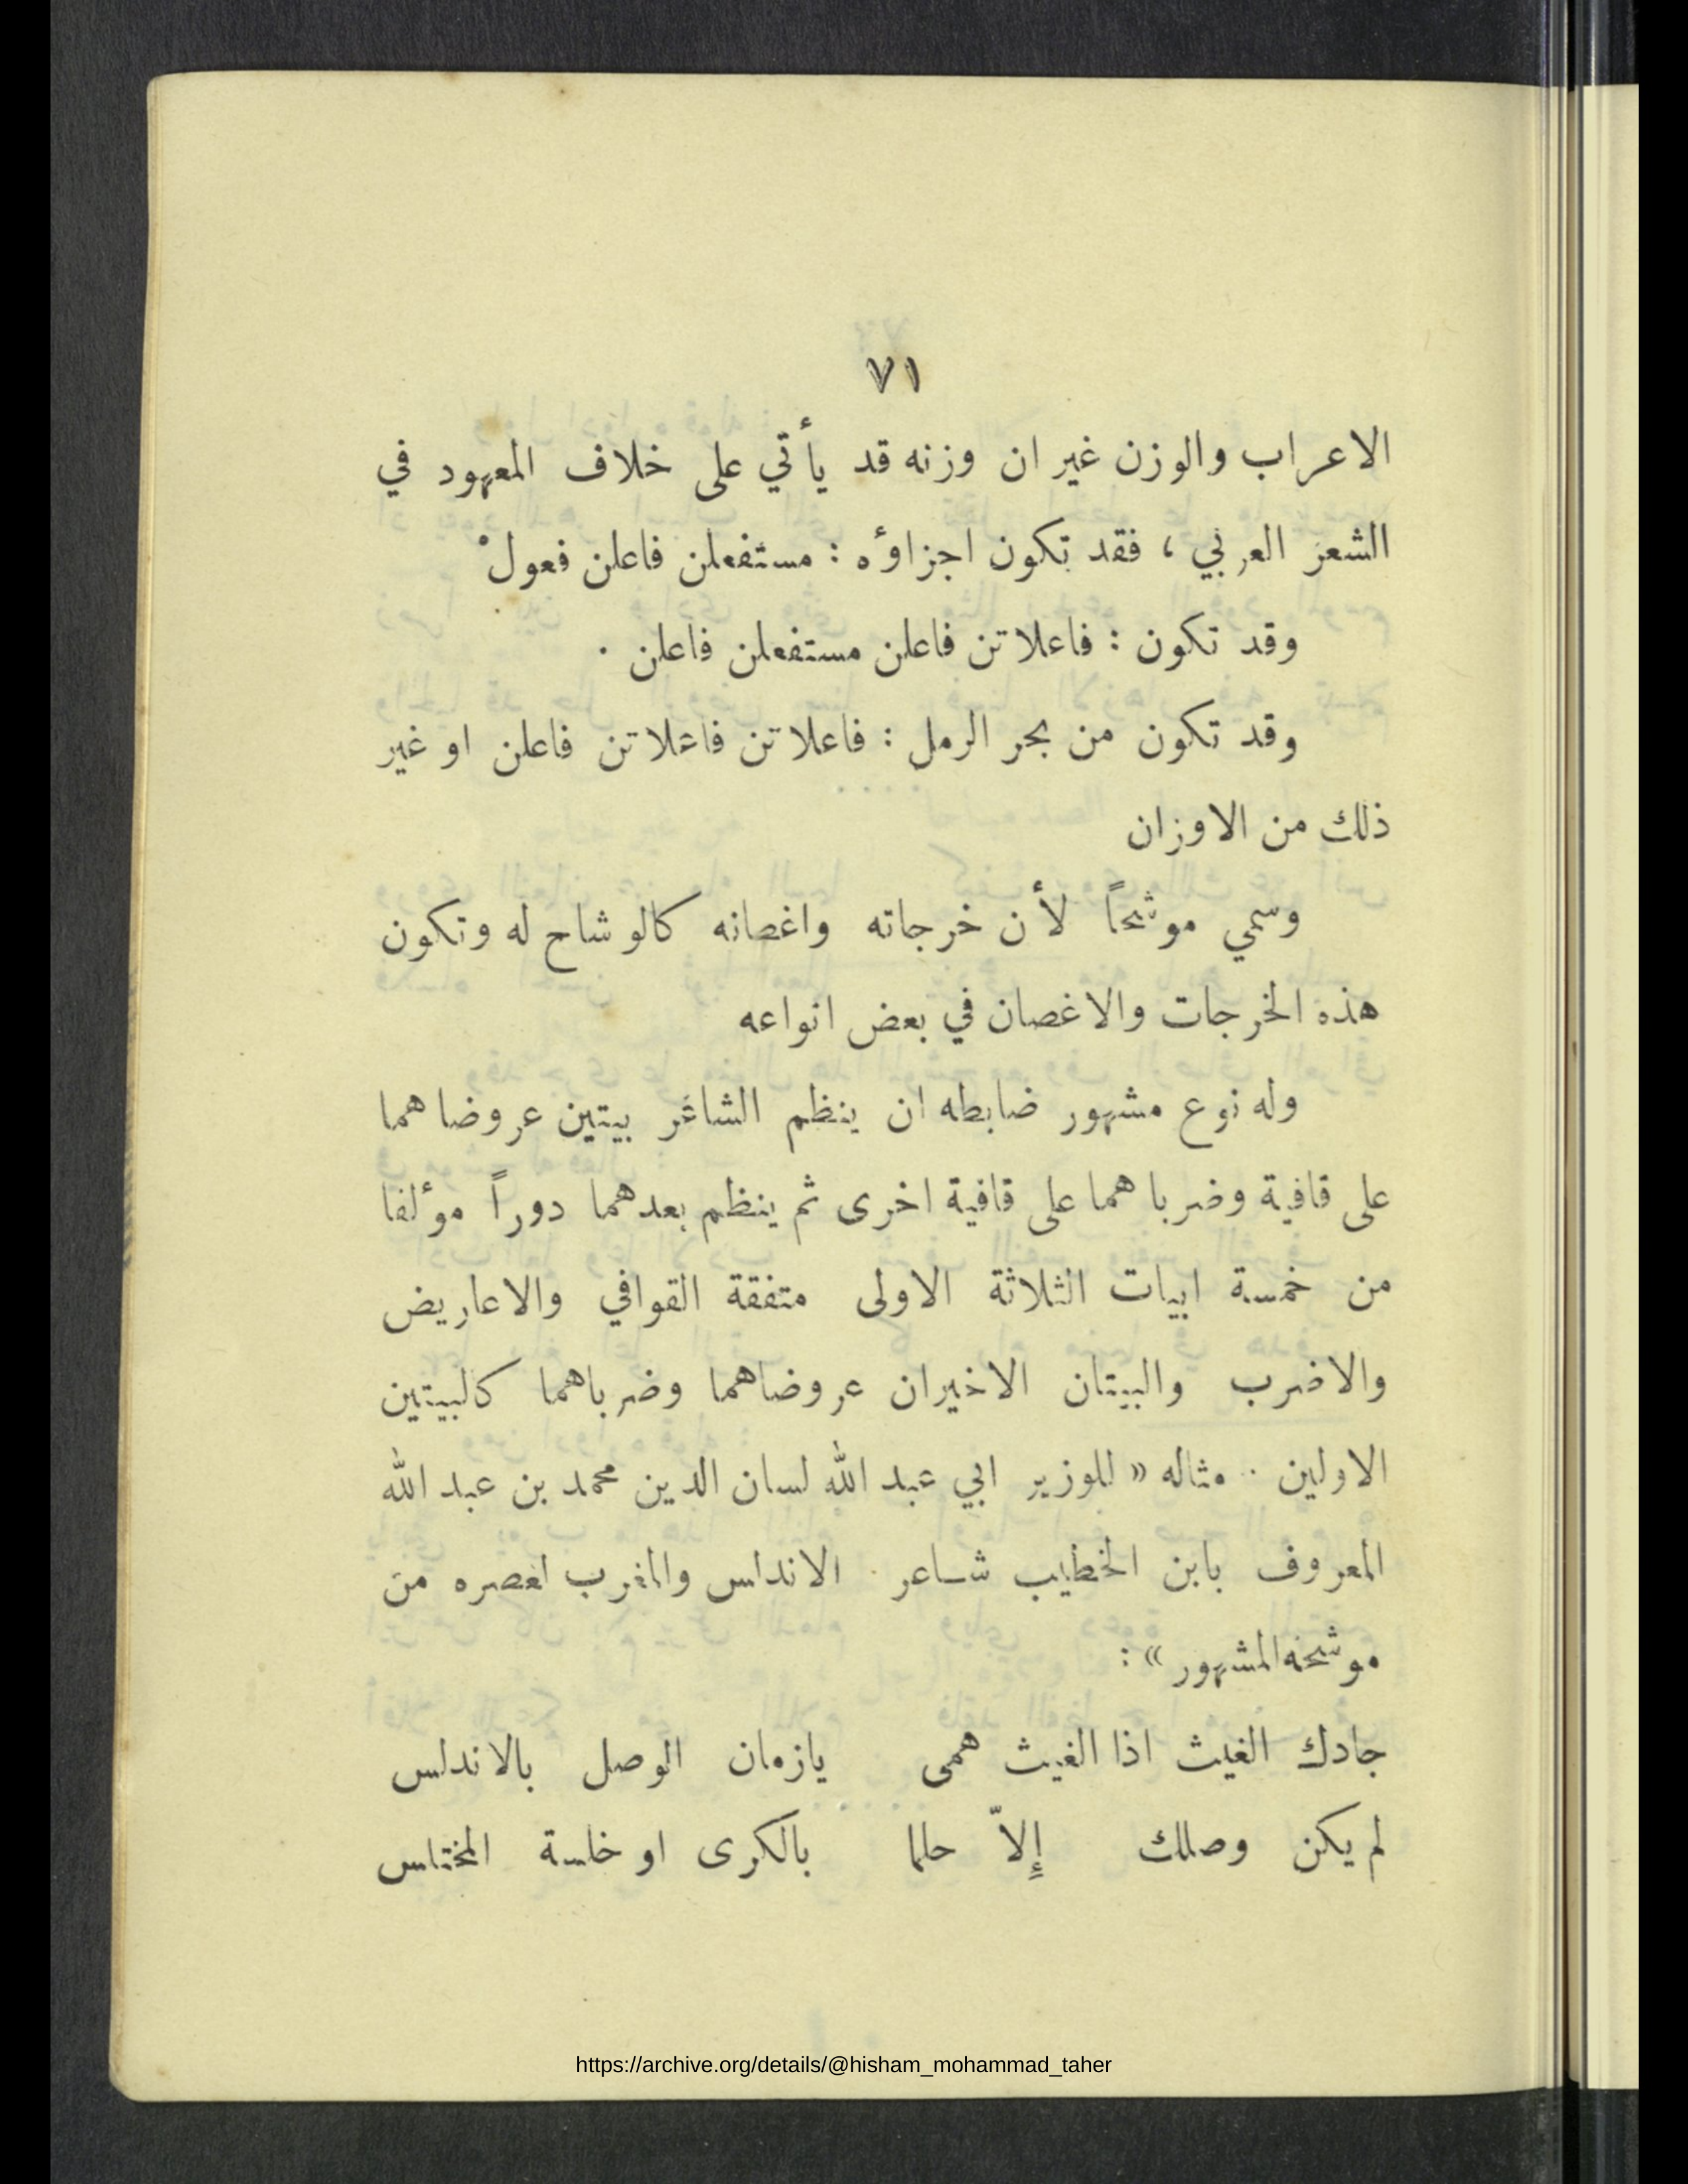 ٧١
الاعراب والوزن غير ان وزنه قد يأتي على خلاف المعهود في
الشعر العربي ، فقد تكون اجزاؤه : مستفعلن فاعلن فعولْ
وقد تكون : فاعلاتن فاعلن مستفعلن فاعلن ·
وقد تكون من بحر الرمل : فاعلاتن فاعلاتن فاعلن او غير
ذلك من الاوزان
وسمي موشحاً لأن خرجاته واغصانه كالوشاح له وتكون
هذه الخرجات والاغصان في بعض انواعه
وله نوع مشهور ضابطه ان ينظم الشاعر بيتين عروضاهما
على قافية وضرباهما على قافية اخرى ثم ينظم بعدهما دوراً مؤلفا
من خمسة ابيات الثلاثة الاولى متفقة القوافي والاعاريض
والاضرب والبيتان الاخيران عروضاهما وضرباهما كالبيتين
الاولين · مثاله « للوزير ابي عبد الله لسان الدين محمد بن عبد الله
المعروف بابن الخطيب شاعر الاندلس والمغرب لعصره من
موشحه المشهور » :
جادك الغيث اذا الغيث همى يازمان الوصل بالاندلس
لم يكن وصلك إلاّ حلما بالكرى او خلسة المختلس
https://archive.org/details/@hisham_mohammad_taher